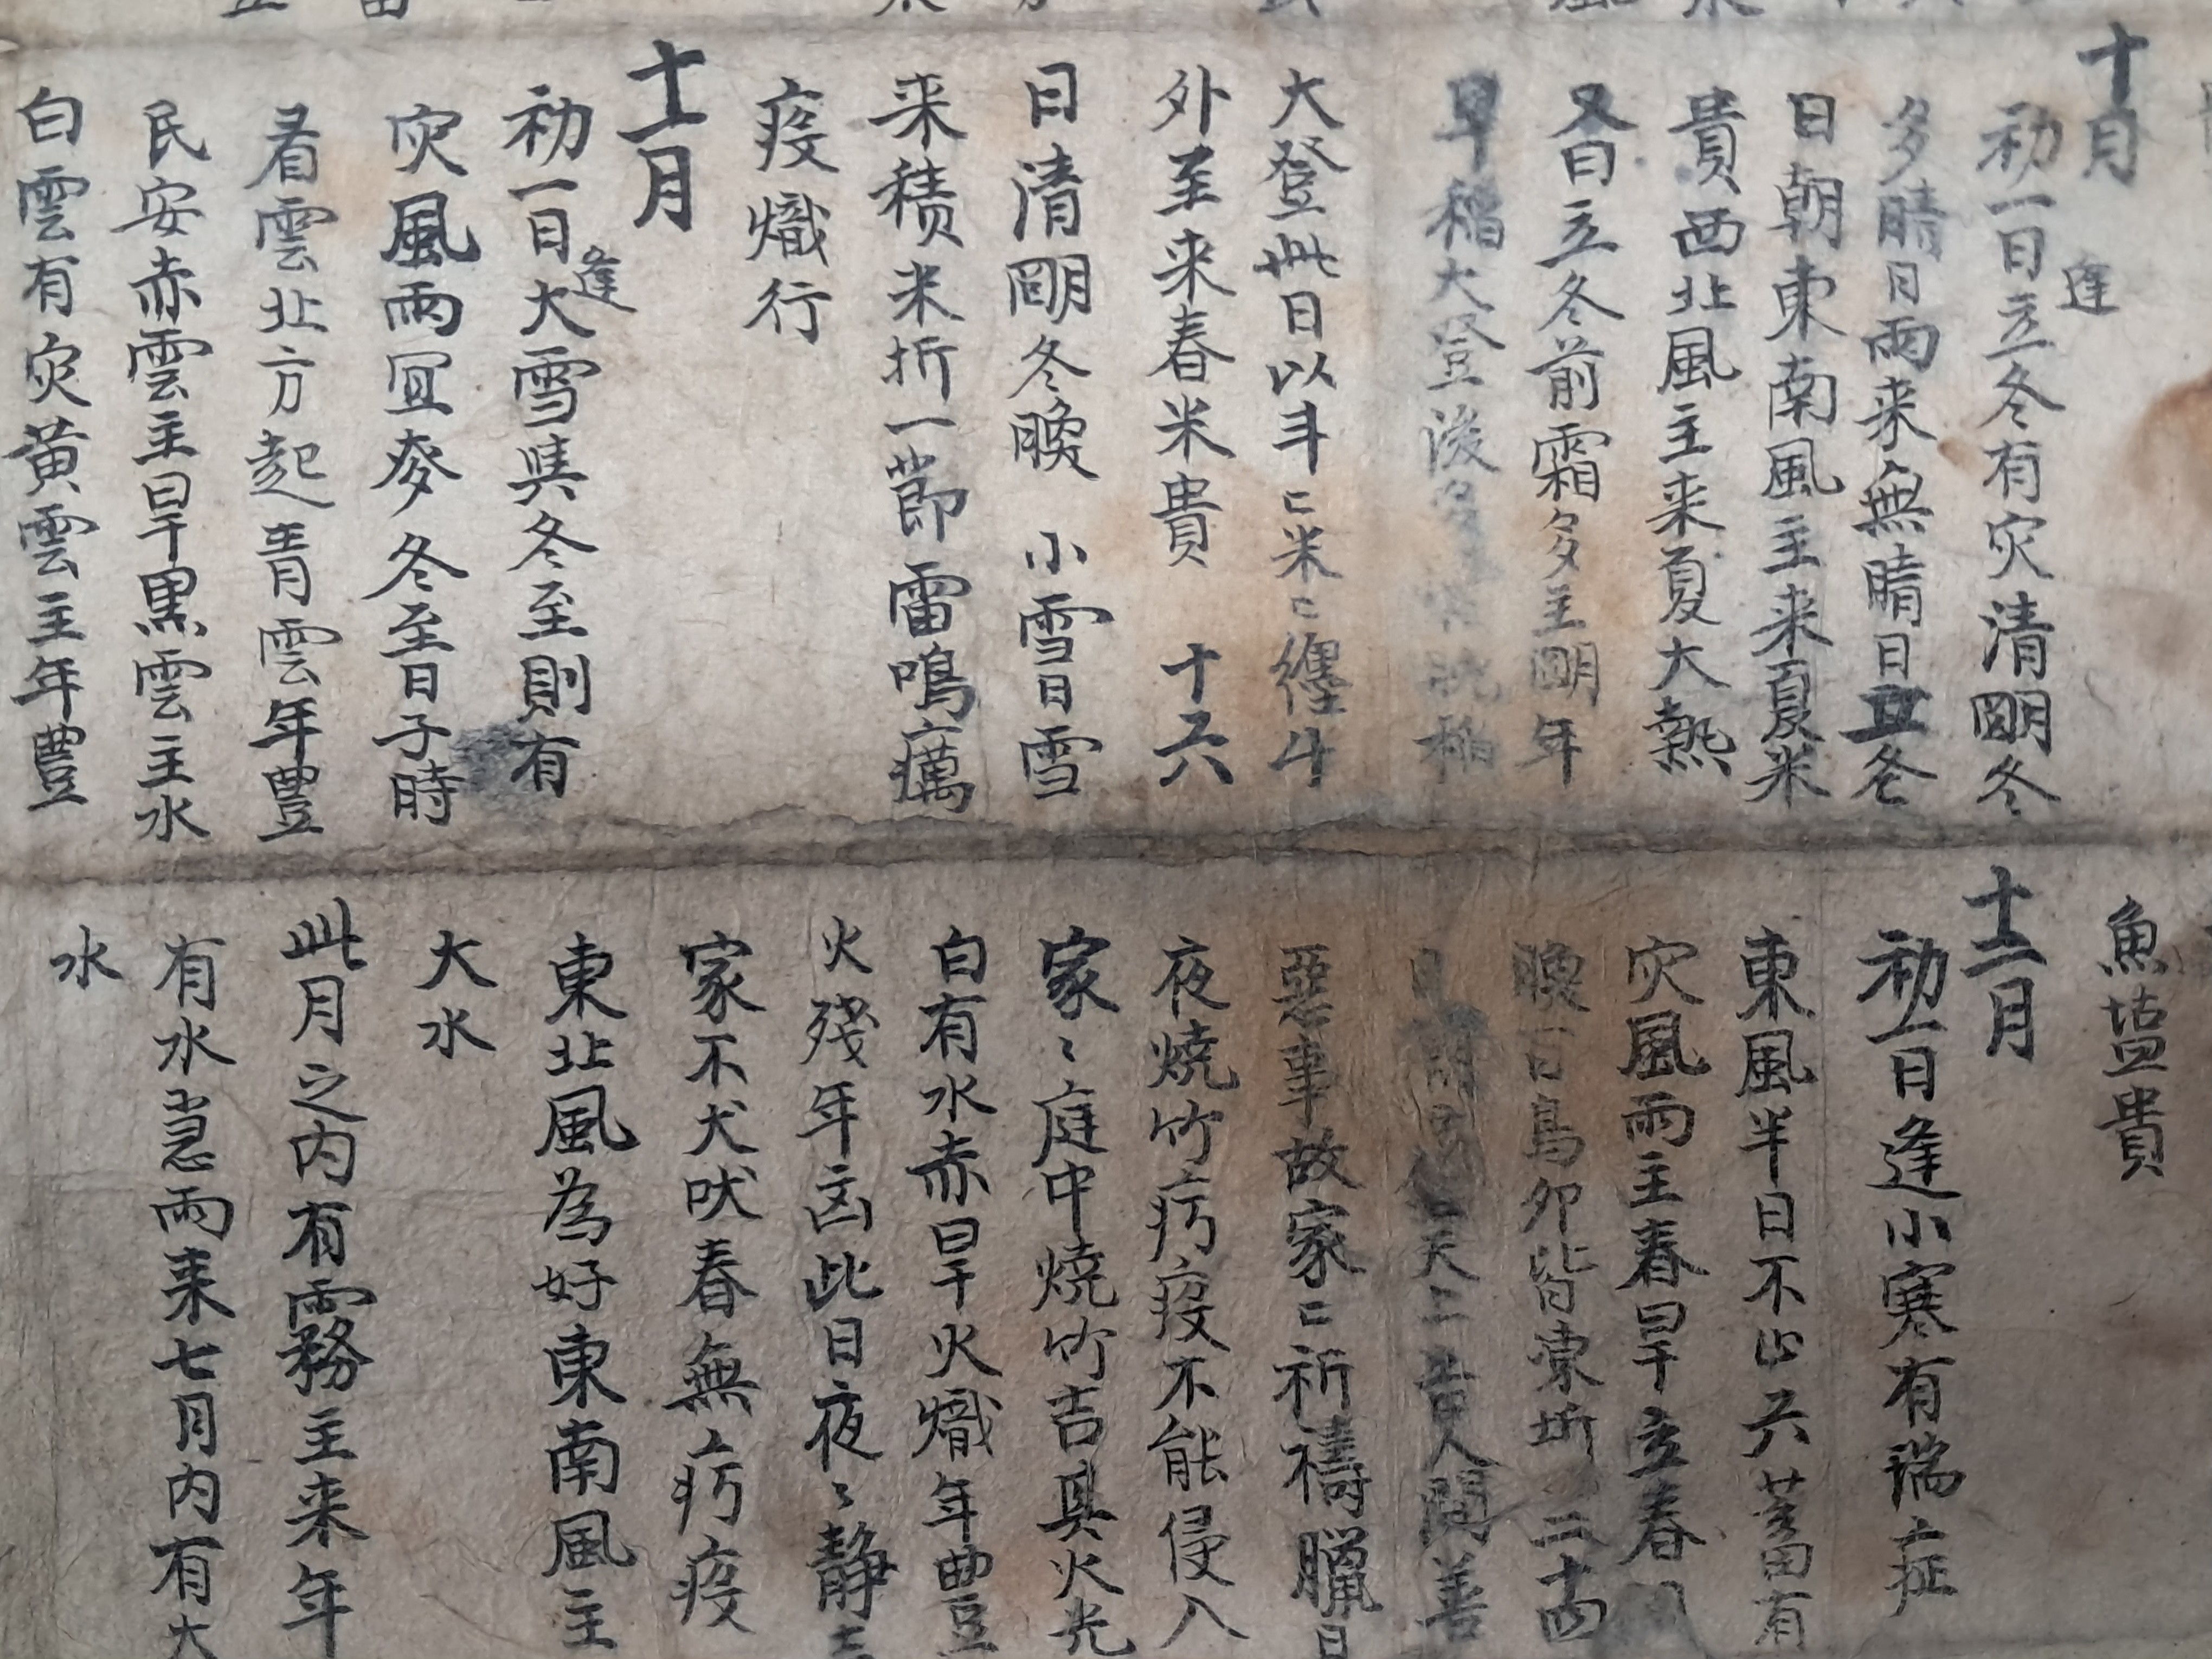 十月
初一日逢立冬有灾清明冬
多晴日雨来無晴日立冬
日朝東南風主来夏米
貴西北風主来夏大熱
又日立冬前霜多主明年
早稲大登後多主 晩稲
大登此日以斗〻米〻纏斗
外至来春米貴 十六
日清明冬暖 小雪日雪
来積米折一節雷鳴癘
疫熾行
十一月
初一日逢大雪與冬至則有
灾風雨冝麥冬至日子時
看雲北方起青雲年豊
民安赤雲主旱黒雲主水
白雲有灾黄雲主年豊
魚塩貴
十二月
初一日逢小寒有瑞症
東風半日不止六蓄有
灾風雨主春旱立春
暖百鳥卵皆東 二十四
日 天上言人間善
惡事故家〻祈禱臘日
夜燒竹疠疫不能侵入
家〻庭中燒竹吉具火光
白有水赤旱火熾年豊
火殘年凶此日夜〻静
家不犬吠春無疠疫
東北風為好東南風主
大水
此月之内有霧主来年
有水急雨来七月内有大
水